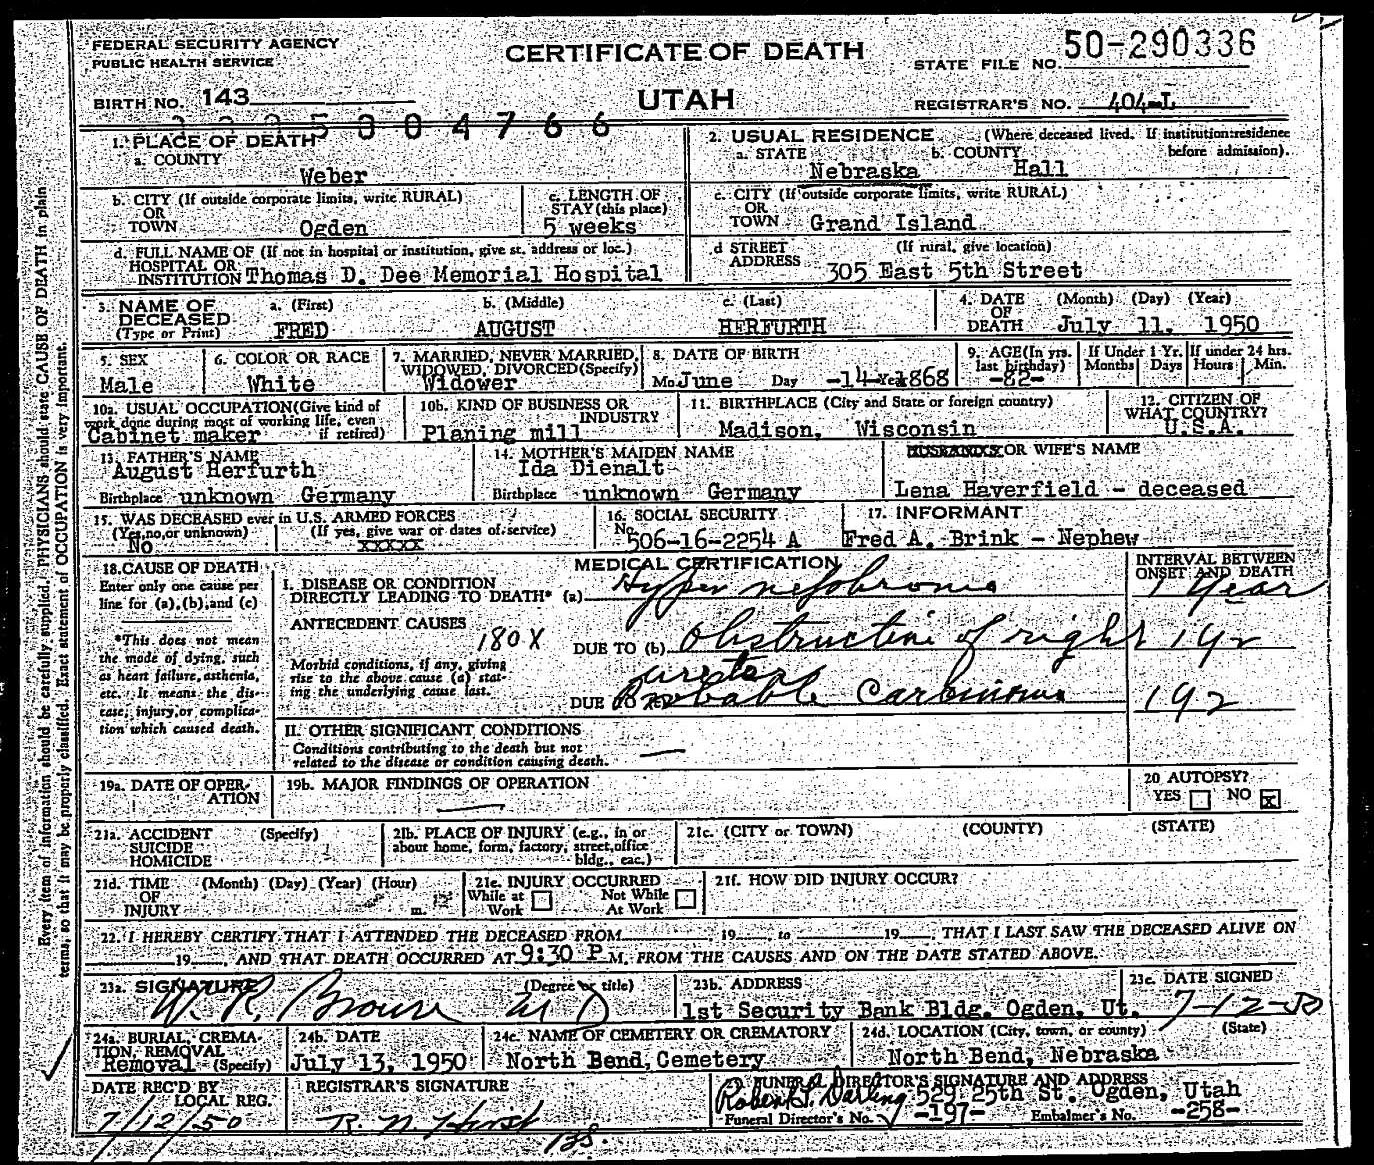 FEDERAL SECURITY AGENCY
PUBLIC HEALTH SERVICE
CERTIFICATE OF DEATH
STATE FILE NO. 50-290336
BIRTH NO. 143
UTAH
REGISTRAR'S NO. 404-L
5 0 0 4 7 6 6
1. PLACE OF DEATH
a. COUNTY
Weber
2. USUAL RESIDENCE (Where deceased lived. If institution:residence before admission).
a. STATE Nebraska b. COUNTY Hall
b. CITY (If outside corporate limits, write RURAL)
OR
TOWN Ogden
c. LENGTH OF
STAY (this place)
5 weeks
c. CITY (If outside corporate limits, write RURAL)
OR
TOWN Grand Island
d. FULL NAME OF (If not in hospital or institution, give st. address or loc.)
HOSPITAL OR
INSTITUTION Thomas D. Dee Memorial Hospital
d STREET (If rural, give location)
ADDRESS 305 East 5th Street
3. NAME OF DECEASED (Type or Print)
a. (First) b. (Middle) c. (Last)
FRED AUGUST HERFURTH
4. DATE OF DEATH (Month) (Day) (Year)
July 11, 1950
5. SEX
Male
6. COLOR OR RACE
White
7. MARRIED, NEVER MARRIED,
WIDOWED, DIVORCED (Specify)
Widower
8. DATE OF BIRTH
Mo. June Day -14- Year 1868
9. AGE (In yrs. last birthday)
-82-
If Under 1 Yr. Months Days
If under 24 hrs. Hours Min.
10a. USUAL OCCUPATION (Give kind of
work done during most of working life, even
if retired)
Cabinet maker
10b. KIND OF BUSINESS OR
INDUSTRY
Planing mill
11. BIRTHPLACE (City and State or foreign country)
Madison, Wisconsin
12. CITIZEN OF
WHAT COUNTRY?
U.S.A.
13. FATHER'S NAME
August Herfurth
Birthplace unknown Germany
14. MOTHER'S MAIDEN NAME
Ida Dienalt
Birthplace unknown Germany
HUSBAND'S OR WIFE'S NAME
Lena Haverfield - deceased
15. WAS DECEASED ever in U.S. ARMED FORCES
(Yes,no,or unknown) (If yes, give war or dates of service)
No xxxxx
16. SOCIAL SECURITY
No. 506-16-2254 A
17. INFORMANT
Fred A. Brink - Nephew
18. CAUSE OF DEATH
Enter only one cause per
line for (a), (b), and (c)
*This does not mean
the mode of dying, such
as heart failure, asthenia,
etc. It means the dis-
ease, injury, or complica-
tion which caused death.
MEDICAL CERTIFICATION
I. DISEASE OR CONDITION
DIRECTLY LEADING TO DEATH* (a) Hyper nephroma
INTERVAL BETWEEN
ONSET AND DEATH
1 Year
ANTECEDENT CAUSES
180X
DUE TO (b) Obstruction of right
ureter
1 yr
Morbid conditions, if any, giving
rise to the above cause (a) stat-
ing the underlying cause last.
DUE TO (c) Probable Carcinoma
1 yr
II. OTHER SIGNIFICANT CONDITIONS
Conditions contributing to the death but not
related to the disease or condition causing death.
19a. DATE OF OPER-
ATION
19b. MAJOR FINDINGS OF OPERATION
20 AUTOPSY?
YES NO x
21a. ACCIDENT (Specify)
SUICIDE
HOMICIDE
21b. PLACE OF INJURY (e.g., in or
about home, form, factory, street, office
bldg., eac.)
21c. (CITY or TOWN) (COUNTY) (STATE)
21d. TIME (Month) (Day) (Year) (Hour)
OF
INJURY m.
21e. INJURY OCCURRED
While at Work Not While At Work
21f. HOW DID INJURY OCCUR?
22. I HEREBY CERTIFY THAT I ATTENDED THE DECEASED FROM 19 to 19, THAT I LAST SAW THE DECEASED ALIVE ON
19, AND THAT DEATH OCCURRED AT 9:30 P M. FROM THE CAUSES AND ON THE DATE STATED ABOVE.
23a. SIGNATURE (Degree or title)
W. R. Brown M D
23b. ADDRESS
1st Security Bank Bldg. Ogden, Ut.
23c. DATE SIGNED
7-12-50
24a. BURIAL, CREMA-
TION, REMOVAL
Removal (Specify)
24b. DATE
July 13, 1950
24c. NAME OF CEMETERY OR CREMATORY
North Bend, Cemetery
24d. LOCATION (City, town, or county) (State)
North Bend, Nebraska
DATE REC'D BY
LOCAL REG.
7/12/50
REGISTRAR'S SIGNATURE
FUNERAL DIRECTOR'S SIGNATURE AND ADDRESS
Robert S. Darling 529 25th St. Ogden, Utah
Funeral Director's No. -197- Embalmer's No. -258-
Every item of information should be carefully supplied. PHYSICIANS should state CAUSE OF DEATH in plain
terms, so that it may be properly classified. Exact statement of OCCUPATION is very important.